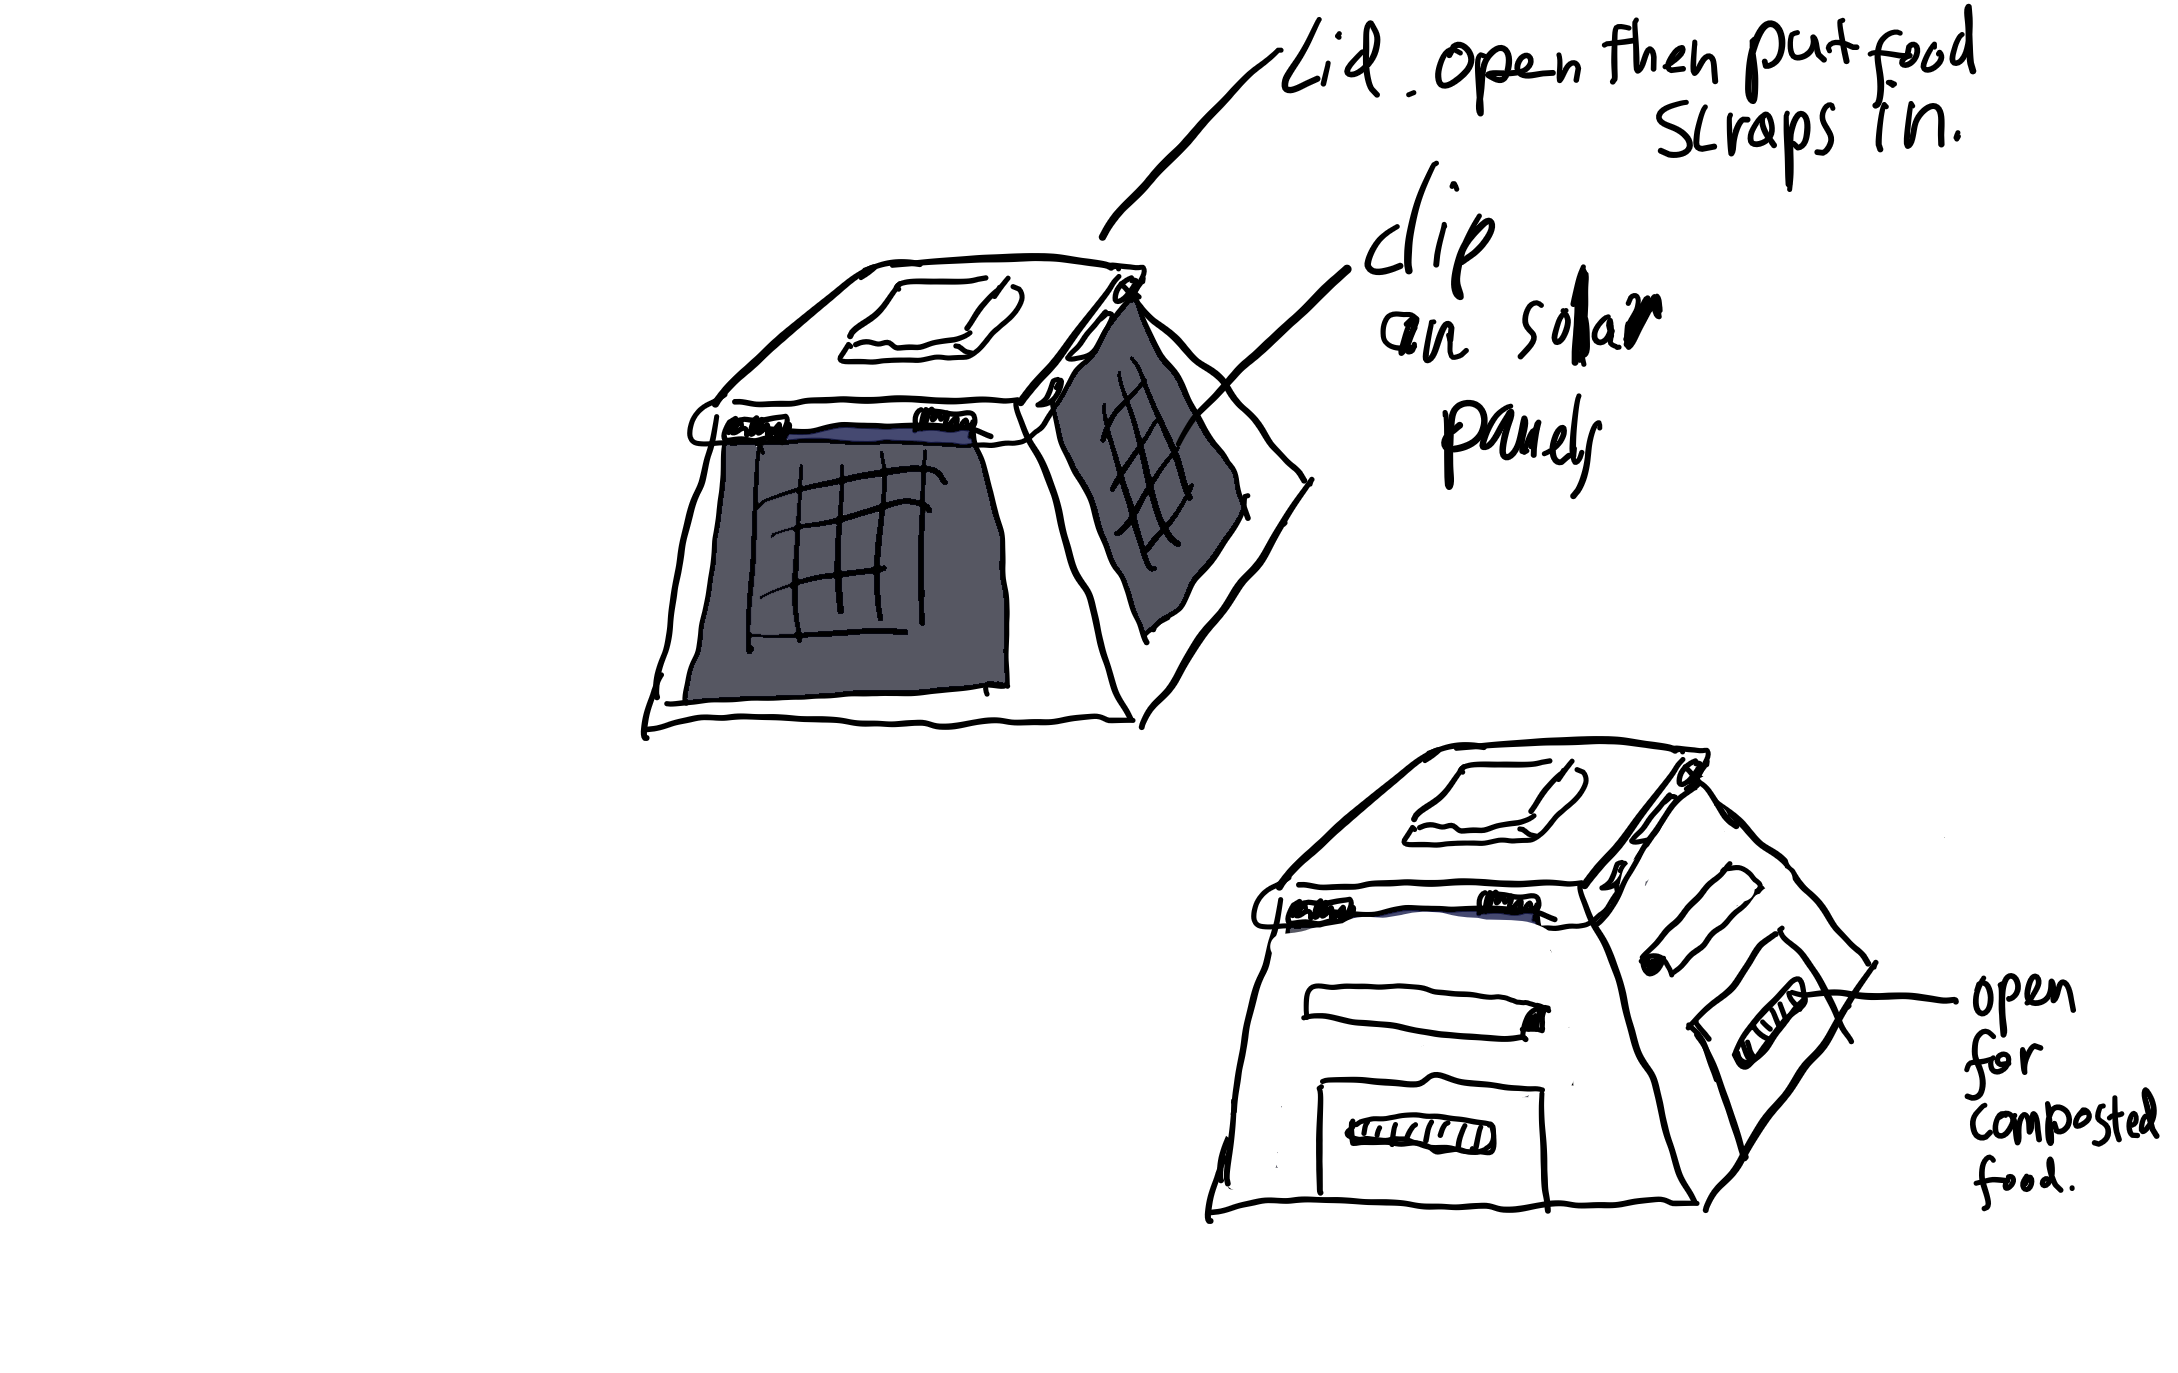 Lid. open then put food
scraps in.
clip
on solar
panels
open
for
composted
food.